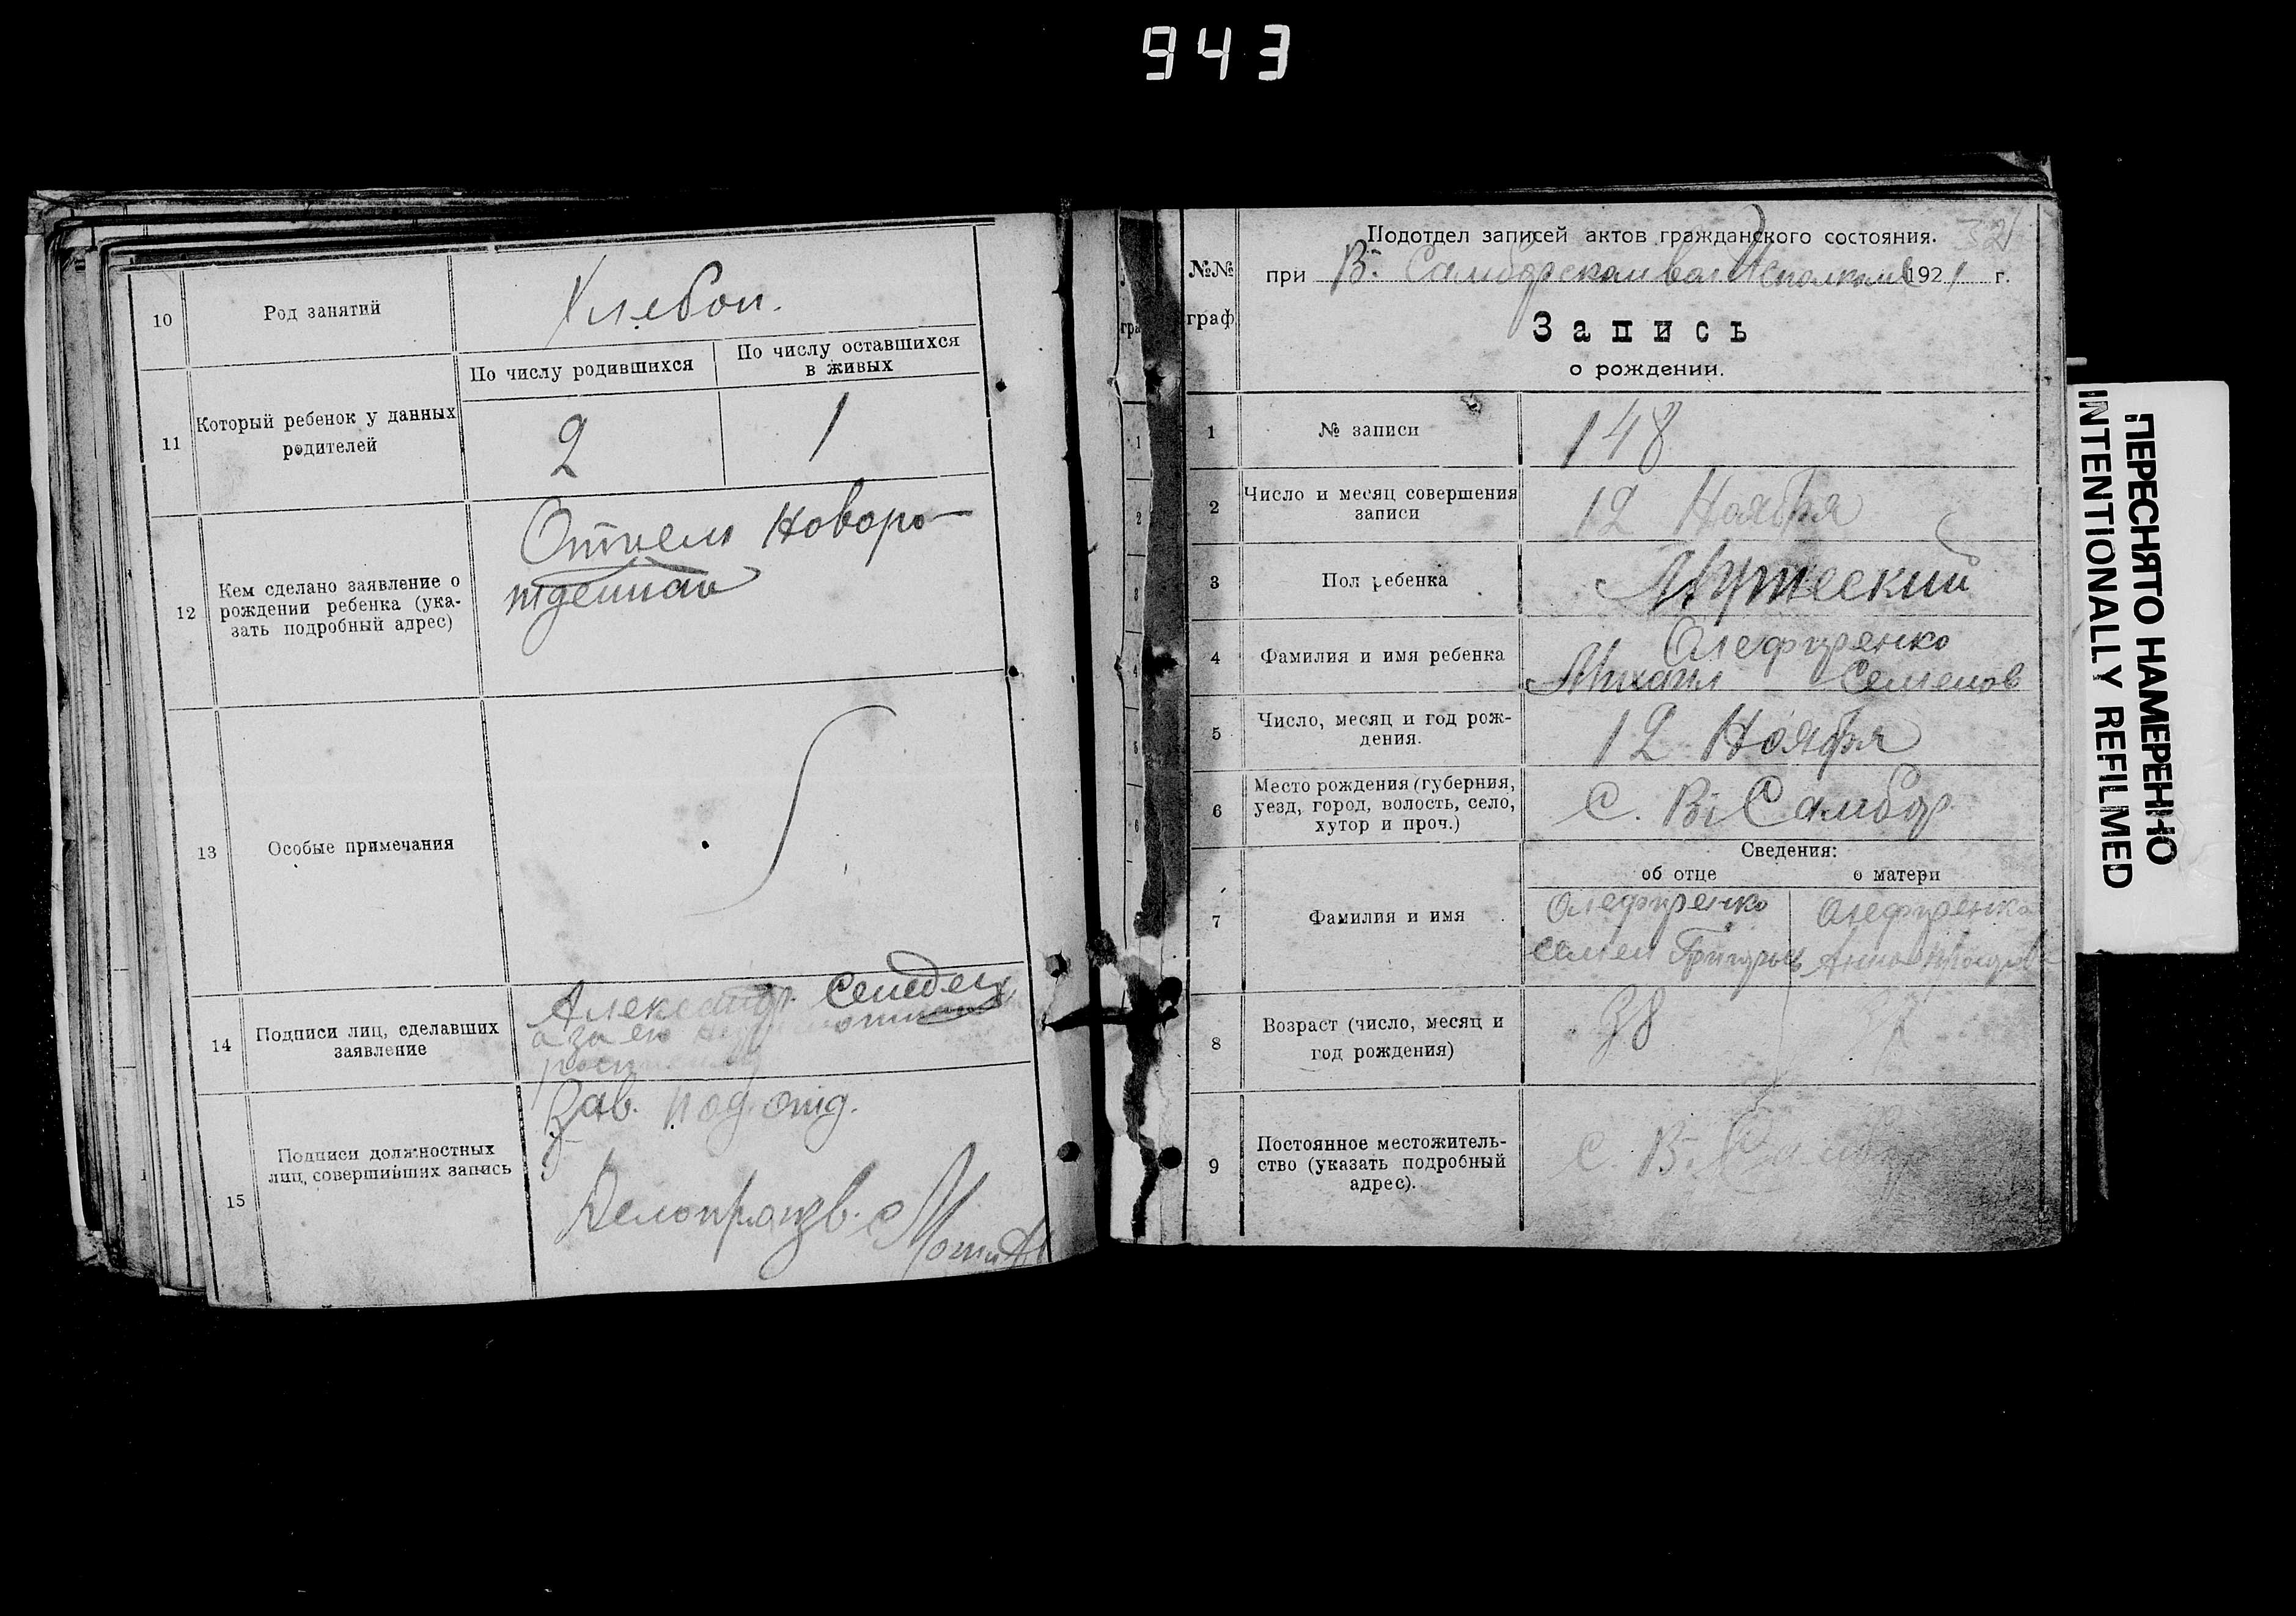 943
10
Род занятий
Хлебоп.
11
Который ребенок у данных
родителей
По числу родившихся
По числу оставшихся
в живых
2
1
12
Кем сделано заявление о
рождении ребенка (ука-
зать подробный адрес)
Отцем Новоро-
жденнаго
13
Особые примечания
14
Подписи лиц, сделавших
заявление
Александр
а за его
15
Подписи должностных
лиц, совершивших запись
Зав. под. отд.
Делопроизв.
№№
граф
Подотдел записей актов гражданского состояния.
32
при В. Самборском вол Исполкоме 1921 г.
Запись
о рождении.
1
№ записи
148
2
Число и месяц совершения
записи
12 Ноября
3
Пол ребенка
Мужеский
4
Фамилия и имя ребенка
Олефиренко
Михаил Семенов
5
Число, месяц и год рож-
дения.
12 Ноября
6
Место рождения (губерния,
уезд, город, волость, село,
хутор и проч.)
С. В. Самбор
Сведения:
об отце
о матери
7
Фамилия и имя
Олефиренко
Семен Григорьев
Олефиренко
Анна
8
Возраст (число, месяц и
год рождения)
38
9
Постоянное местожитель-
ство (указать подробный
адрес).
С. В. Самбор
ПЕРЕСНЯТО НАМЕРЕННО
INTENTIONALLY REFILMED